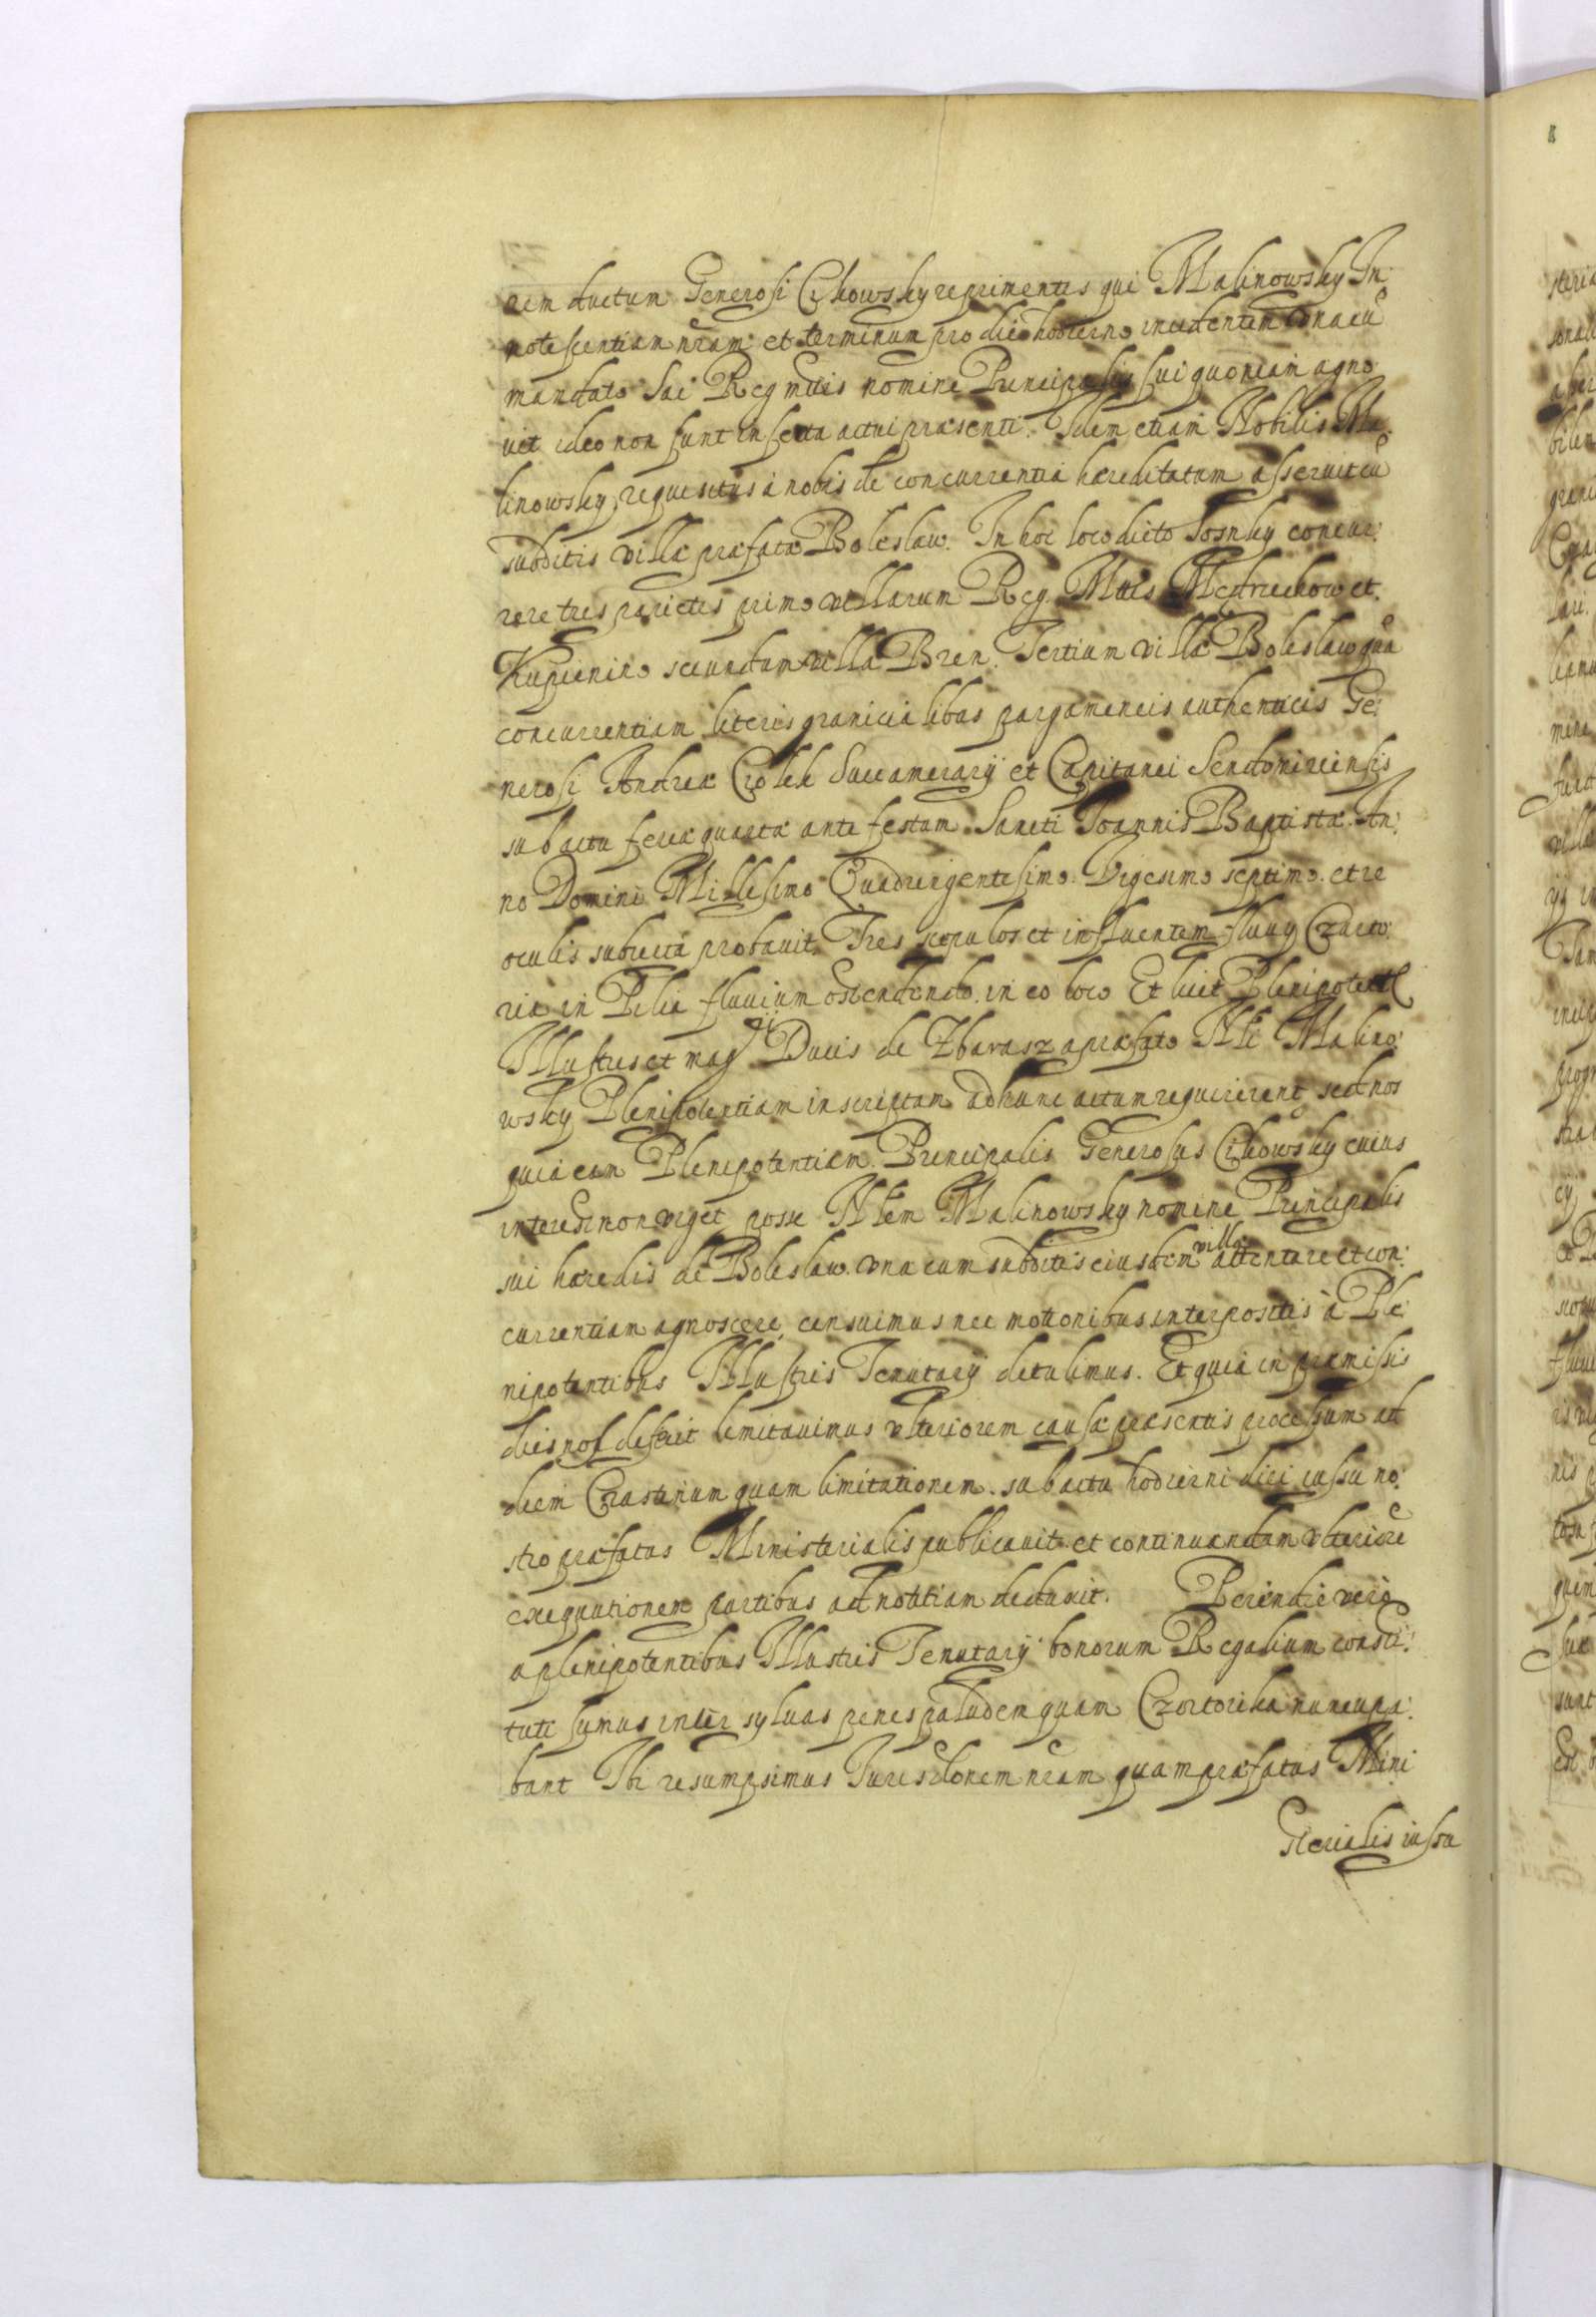 rem ductum Generosi Cikowsky reprimentis qui Malinowsky In:
notescentiam nram et terminum pro die hodierno incidentem vna cū
mandato Sac Reg mtis nomine Principalis sui quoniam agno
uit ideo non sunt inserta actui præsenti. Idem etiam Nobilis Ma:
linowsky requisitus à nobis de concurrentia hæreditatum asseruit cū
subditis villæ præfatæ Boleslaw. In hoc loco dicto Sosnky concur:
rere tres parietes primo villarum Reg Mtis Medrechow et
Kupienino secundum villa Bren. Tertium villæ Boleslaw quā
concurrentiam literis granicialibus pargameneis authenticis Ge:
nerosi Andreæ Ciolek Succamerarij et Capitanei Sendomiriensis
sub actu feria quarta ante festum Sancti Joannis Baptistæ An:
no Domini Millesimo Quadringentesimo Vigesimo septimo et re
oculis subiecta probauit. Tres scopulos et influentem fluuy Czarto:
ria in Pilia fluuium ostendendo in eo loco Et licet Plenipotentes
Illustris et magci Ducis de Zbarasz a præfato Nli Malino:
wsky Plenipotentiam inscriptam ad hunc actum requirerent sed nos
quia eam Plenipotentiam Principalis Generosus Cikowsky cuius
interest non viget posse Nlem Malinowsky nomine Principalis
sui hæredis de Boleslaw vna cum subditis eiusdem villæ attentare et con:
currentiam agnoscere censuimus nec motionibus interpositis à Ple:
nipotentibus Illustris Tenutarij detulimus. Et quia in præmissis
dies nos deficit limitauimus vlteriorem causæ præsentis processum ad
diem Crastinum quam limitationem sub actu hodierni diei iussu no:
stro præfatus Ministerialis publicauit et continuandam vlteriorē
exequutionem partibus ad notitiam deduxit. Perindie vero
a plenipotentibus Illustris Tenutarij bonorum Regalium consti:
tuti sumus inter syluas penes paludem quam Czortorika nuncupa:
bant Ibi resumpsimus Jurisdonem nram quam præfatus Mini
sterialis iussu